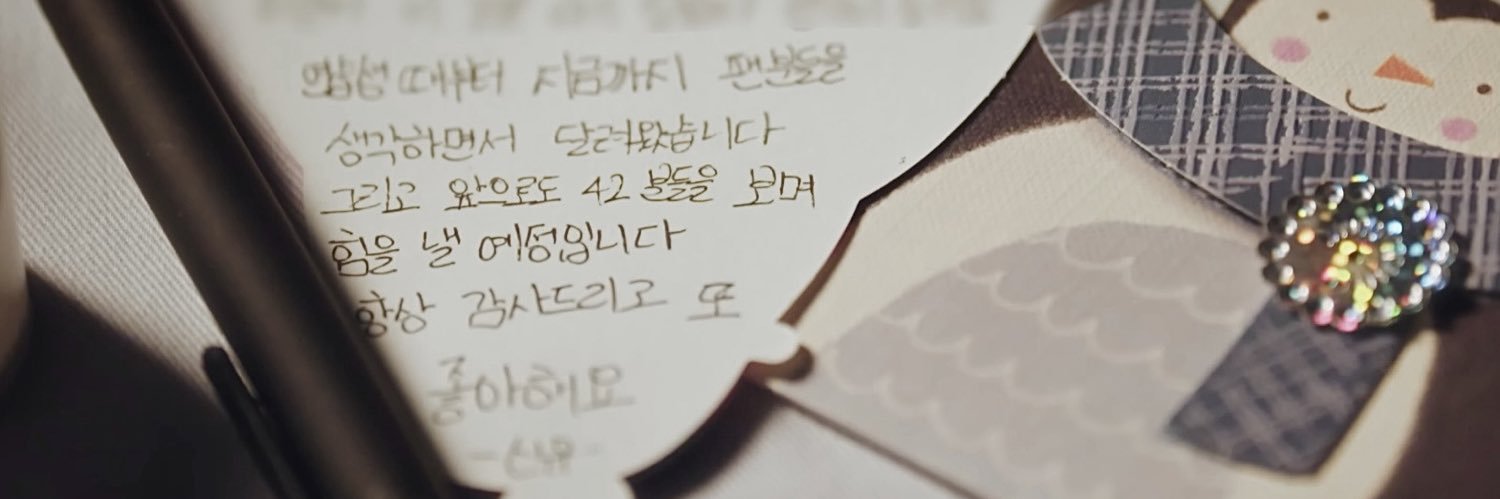 때부터 지금까지 팬분들을
생각하면서 달려왔습니다
그리고 앞으로도 42 분들을 보며
힘을 낼 예정입니다
항상 감사드리고 또
좋아해요
-신유-